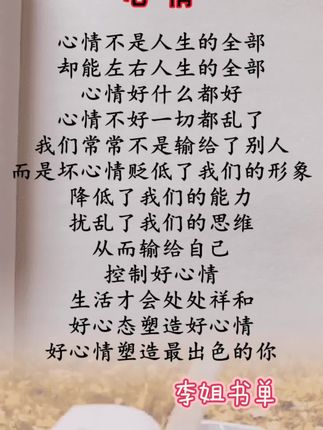 心情
心情不是人生的全部
却能左右人生的全部
心情好什么都好
心情不好一切都乱了
我们常常不是输给了别人
而是坏心情贬低了我们的形象
降低了我们的能力
扰乱了我们的思维
从而输给自己
控制好心情
生活才会处处祥和
好心态塑造好心情
好心情塑造最出色的你
李姐书单